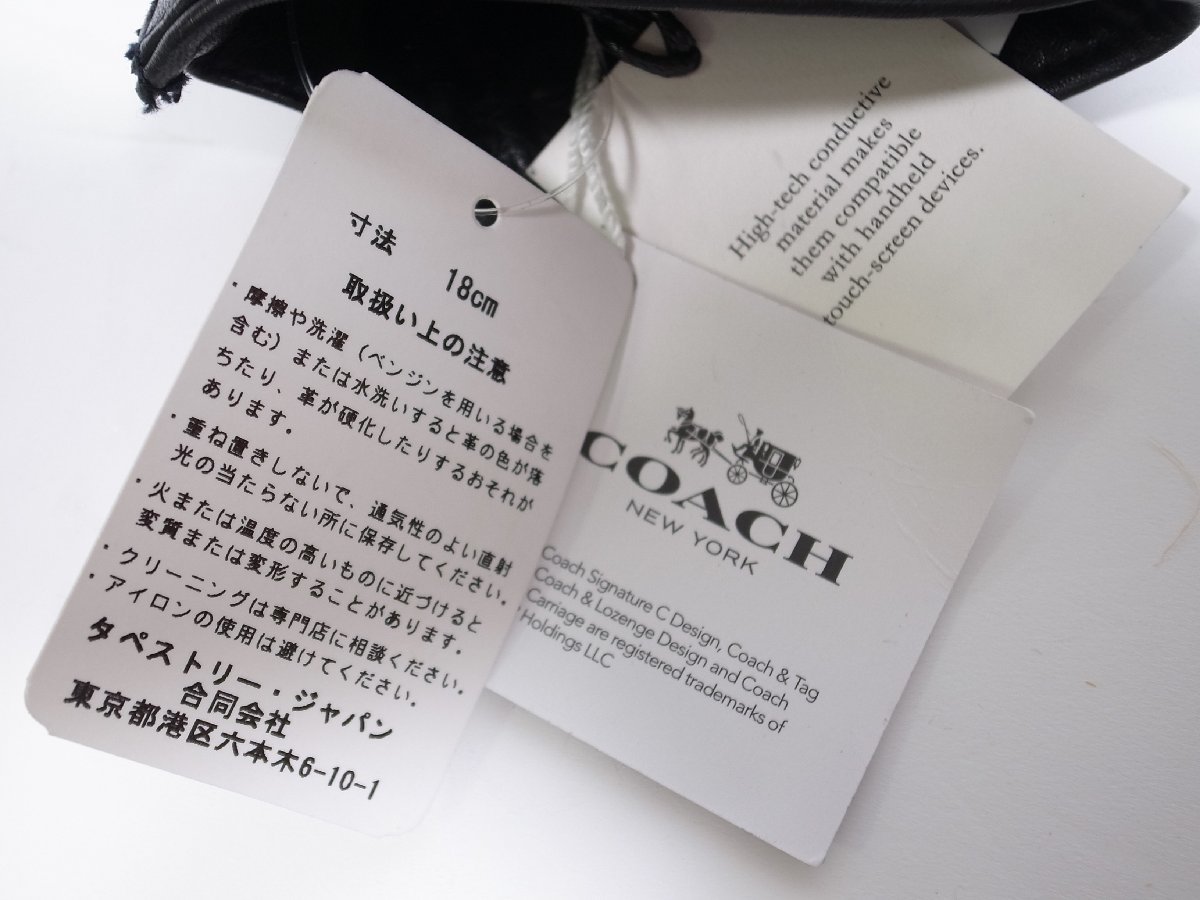 寸法
18cm
取扱い上の注意
・摩擦や洗濯（ベンジンを用いる場合を
含む）または水洗いすると革の色が落
ちたり、革が硬化したりするおそれが
あります。
・重ね置きしないで、通気性のよい直射
光の当たらない所に保存してください。
・火または温度の高いものに近づけると
変質または変形することがあります。
・クリーニングは専門店に相談ください。
・アイロンの使用は避けてください。
タペストリー・ジャパン
合同会社
東京都港区六本木6-10-1
High-tech conductive
material makes
them compatible
with handheld
touch-screen devices.
COACH
NEW YORK
Coach Signature C Design, Coach & Tag
Coach & Lozenge Design and Coach
Carriage are registered trademarks of
Holdings LLC